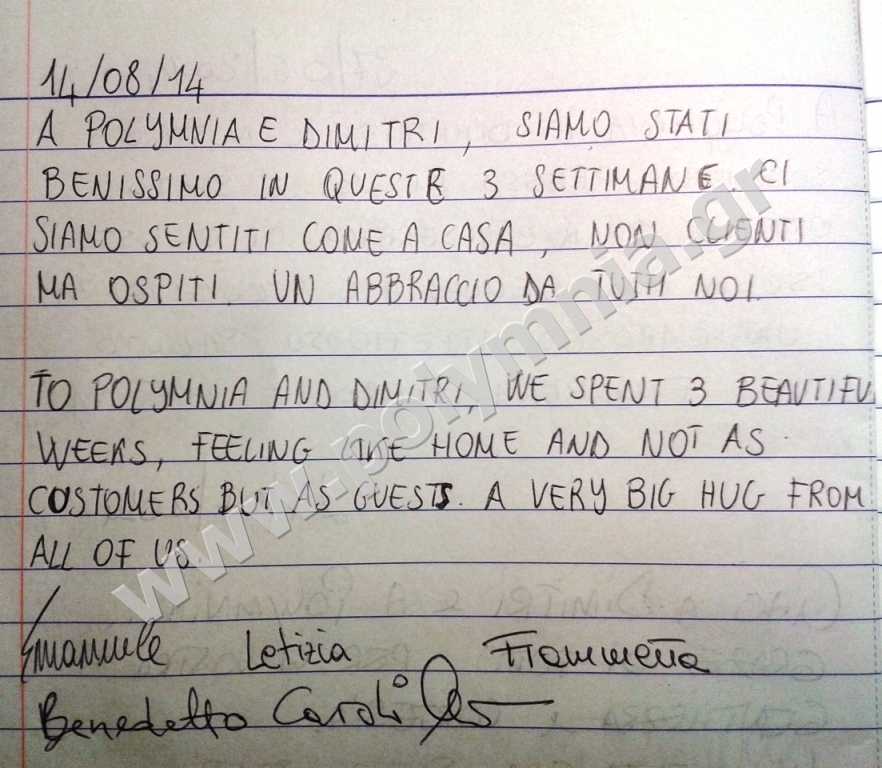 14/08/14
A POLYMNIA E DIMITRI, SIAMO STATI
BENISSIMO IN QUESTE 3 SETTIMANE. CI
SIAMO SENTITI COME A CASA, NON CLIENTI
MA OSPITI. UN ABBRACCIO DA TUTTI NOI.
TO POLYMNIA AND DIMITRI, WE SPENT 3 BEAUTIFU
WEEKS, FEELING LIKE HOME AND NOT AS
CUSTOMERS BUT AS GUESTS. A VERY BIG HUG FROM
ALL OF US.
Emanuele Letizia Fiammetta
Benedetto
www.polymnia.gr